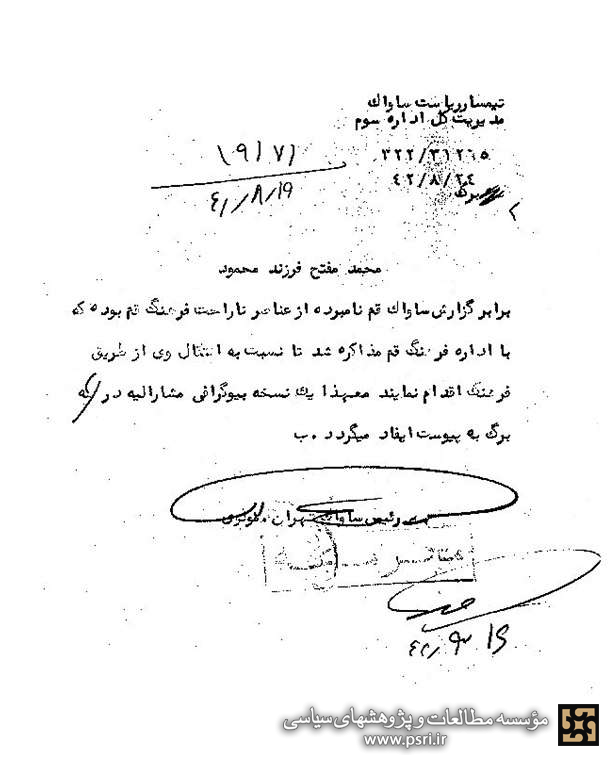 تیمسار ریاست ساواک
مدیریت کل اداره سوم
۳۲۲/۳۱۲۶۵
۴۲/۸/۲۴
برگ
۱۹۱۷۱
محمد مفتح فرزند محمود
برابر گزارش ساواک قم نامبرده از عناصر ناراحت فرهنگ قم بوده که
با اداره فرهنگ قم مذاکره شد تا نسبت به انتقال وی از طریق
فرهنگ اقدام نمایند معهذا یک نسخه بیوگرافی مشارالیه در
برگ به پیوست ایفاد میگردد . ب
رئیس ساواک تهران مولوی
مؤسسه مطالعات و پژوهشهای سیاسی
www.psri.ir